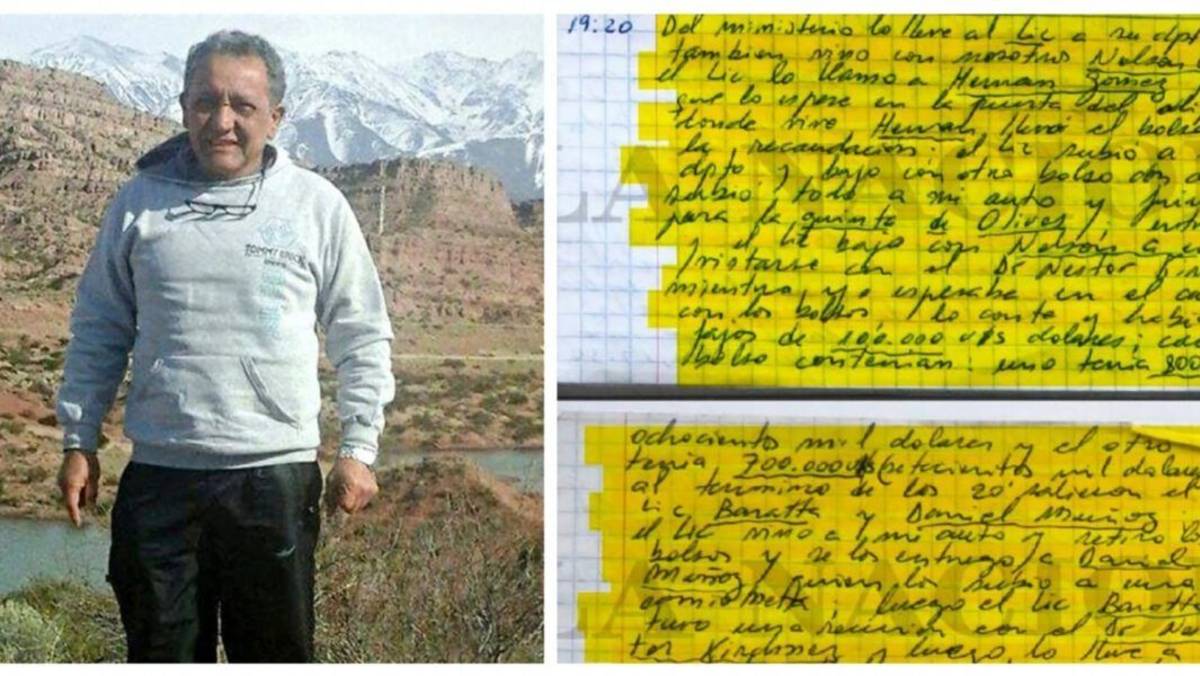 TOMMY
19:20 Del ministerio lo lleve al Lic a su dpt
tambien vino con nosotros Nelson
el Lic lo llamo a Hernan Gomez
que lo espere en la puerta del
donde vive Hernan llevó el bols
la recaudacion: el Lic subio a
dpto y bajo con otro bolso
subio todo a mi auto y
para la quinta de Olivos
el Lic bajo con Nelson a
con el Dr Nestor
mientras yo esperaba en el
con los bolsos lo conte y habi
fajos de 100.000 U$S dolares; ca
bolso contenian: uno tenia 800
ochociento mil dolares y el otro
tenia 700.000 U$S (setecientos mil dolar
al termino de los 20' salieron el
Lic Baratta y Daniel Muñoz:
el Lic vino a mi auto y retiro l
bolsos y se los entrego a Daniel
Muñoz quien los subio a una
camioneta; luego el Lic Baratt
tuvo una reunion con el Dr Ne
tor Kirchner y luego lo lleve a
LA NACION
LA NACION